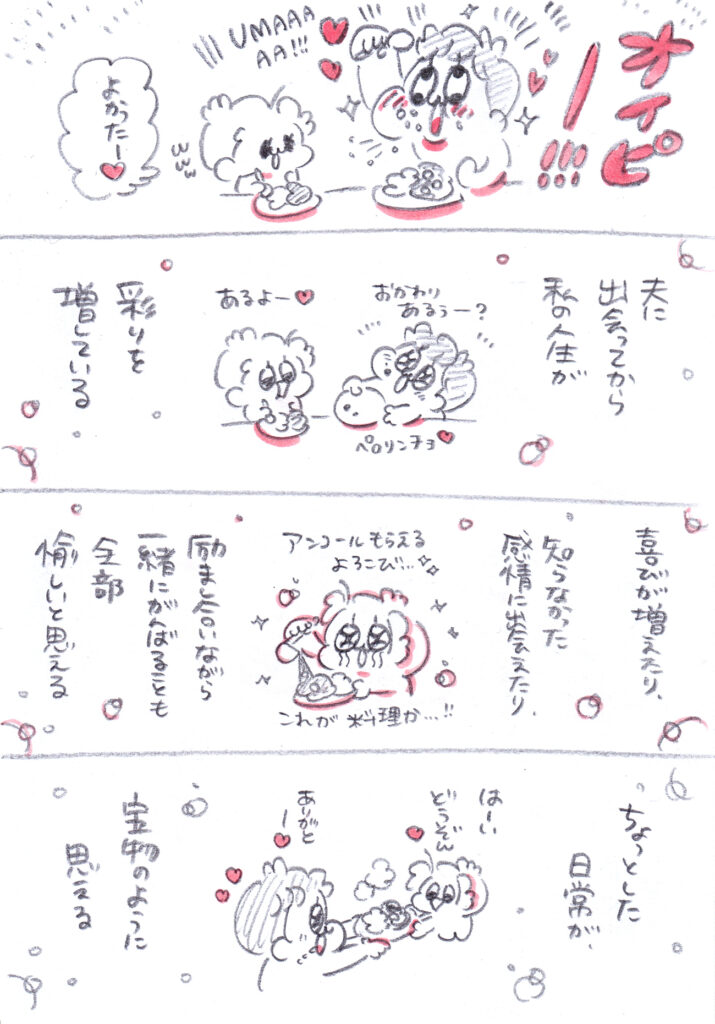 オイピー!!!
UMAAA
AA!!!
よかったー
www
夫に
出会ってから
私の人生が
おかわり
あるぅー?
あるよー
ペロリンチョ
彩りを
増している
喜びが増えたり、
知らなかった
感情に出会えたり、
アンコールもらえる
よろこび…
これが料理か…!!
励まし合いながら
一緒にがんばることも
全部
愉しいと思える
ちょっとした
日常が、
はーい
どうぞん
ありがと
ー
宝物のように
思える